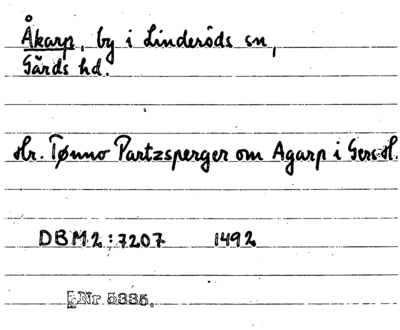 Åkarp, by i Linderöds sn,
Gärds hd.
Hr. Tønno Partzsperger om Agarp i Gers H.
DBM2:7207 1492
Nr 5335.